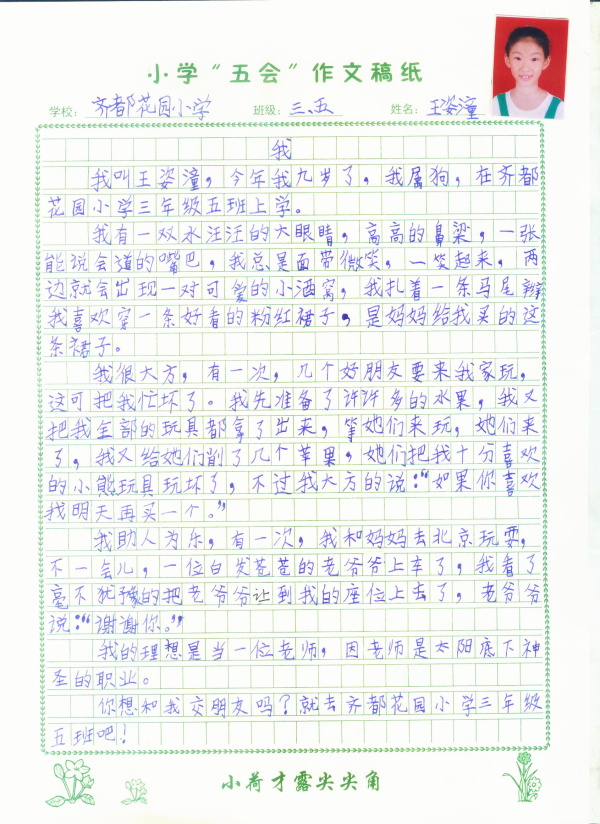 小学“五会”作文稿纸
学校：齐都花园小学 班级：三、五 姓名：王姿潼
我
我叫王姿潼，今年我九岁了，我属狗，在齐都
花园小学三年级五班上学。
我有一双水汪汪的大眼睛，高高的鼻梁，一张
能说会道的嘴巴，我总是面带微笑，一笑起来，两
边就会出现一对可爱的小酒窝，我扎着一条马尾辫
我喜欢穿一条好看的粉红裙子，是妈妈给我买的这
条裙子。
我很大方，有一次，几个好朋友要来我家玩，
这可把我忙坏了。我先准备了许许多的水果，我又
把我全部的玩具都拿了出来，等她们来玩，她们来
了，我又给她们削了几个苹果，她们把我十分喜欢
的小熊玩具玩坏了，不过我大方的说：“如果你喜欢
我明天再买一个。”
我助人为乐，有一次，我和妈妈去北京玩耍，
不一会儿，一位白发苍苍的老爷爷上车了，我看了
毫不犹豫的把老爷爷让到我的座位上去了，老爷爷
说：“谢谢你。”
我的理想是当一位老师，因老师是太阳底下神
圣的职业。
你想和我交朋友吗？就去齐都花园小学三年级
五班吧！
小荷才露尖尖角